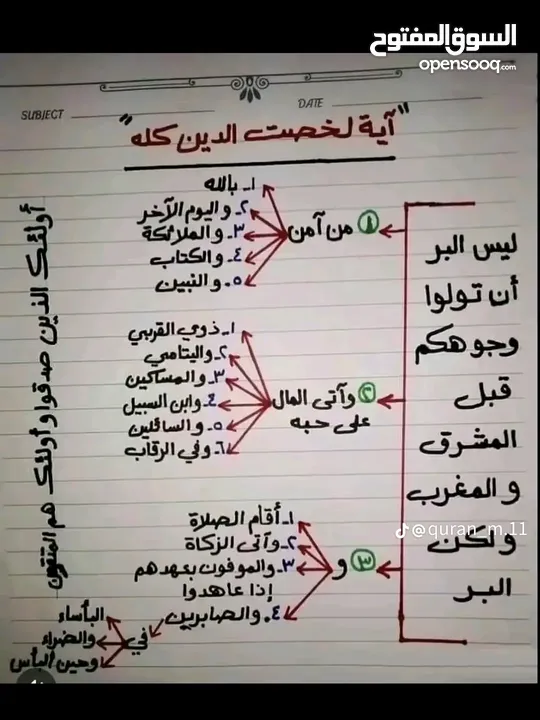 السوق المفتوح
opensooq.com
SUBJECT
DATE
"آية لخصت الدين كله"
ليس البر
أن تولوا
وجوهكم
قبل
المشرق
والمغرب
ولكن
البر
١ من آمن
١- بالله
٢- واليوم الآخر
٣- والملائكة
٤- والكتاب
٥- والنبين
٢ وآتى المال
على حبه
١- ذوي القربي
٢- واليتامي
٣- والمساكين
٤- وابن السبيل
٥- والسائلين
٦- وفي الرقاب
٣ و
١- أقام الصلاة
٢- وآتى الزكاة
٣- والموفون بعهدهم
إذا عاهدوا
٤- والصابرين
في
البأساء
والضراء
وحين البأس
أولئك الذين صدقوا وأولئك هم المتقون
@quran_m.11